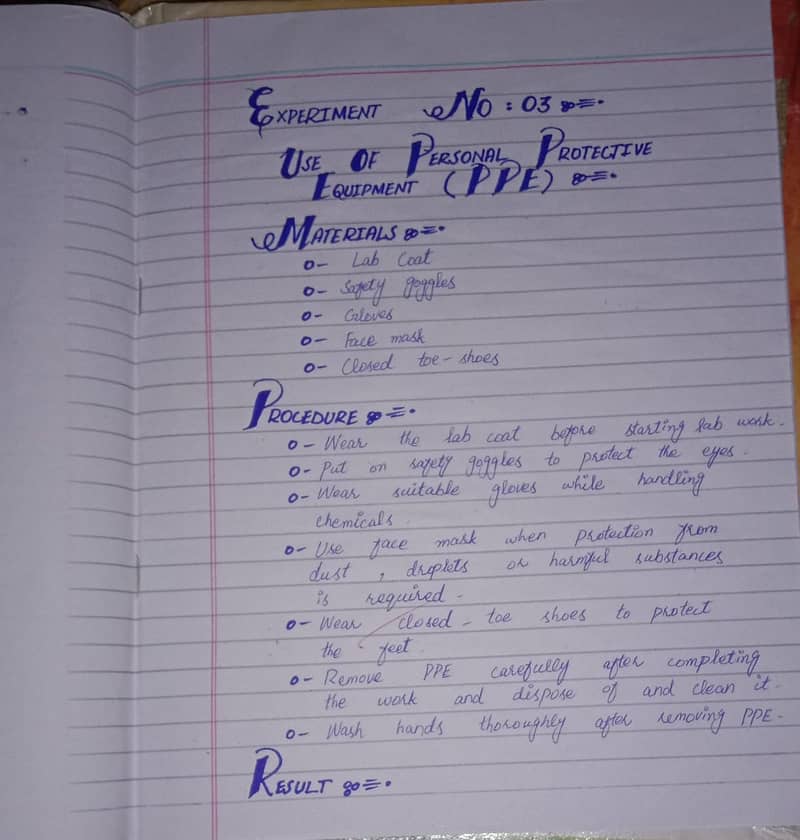 EXPERIMENT NO : 03
USE OF PERSONAL PROTECTIVE
EQUIPMENT (PPE)
MATERIALS
o- Lab Coat
o- Safety goggles
o- Gloves
o- Face mask
o- Closed toe-shoes
PROCEDURE
o- Wear the lab coat before starting lab work.
o- Put on safety goggles to protect the eyes.
o- Wear suitable gloves while handling
chemicals.
o- Use face mask when protection from
dust , droplets or harmful substances
is required.
o- Wear closed-toe shoes to protect
the feet.
o- Remove PPE carefully after completing
the work and dispose of and clean it.
o- Wash hands thoroughly after removing PPE.
RESULT